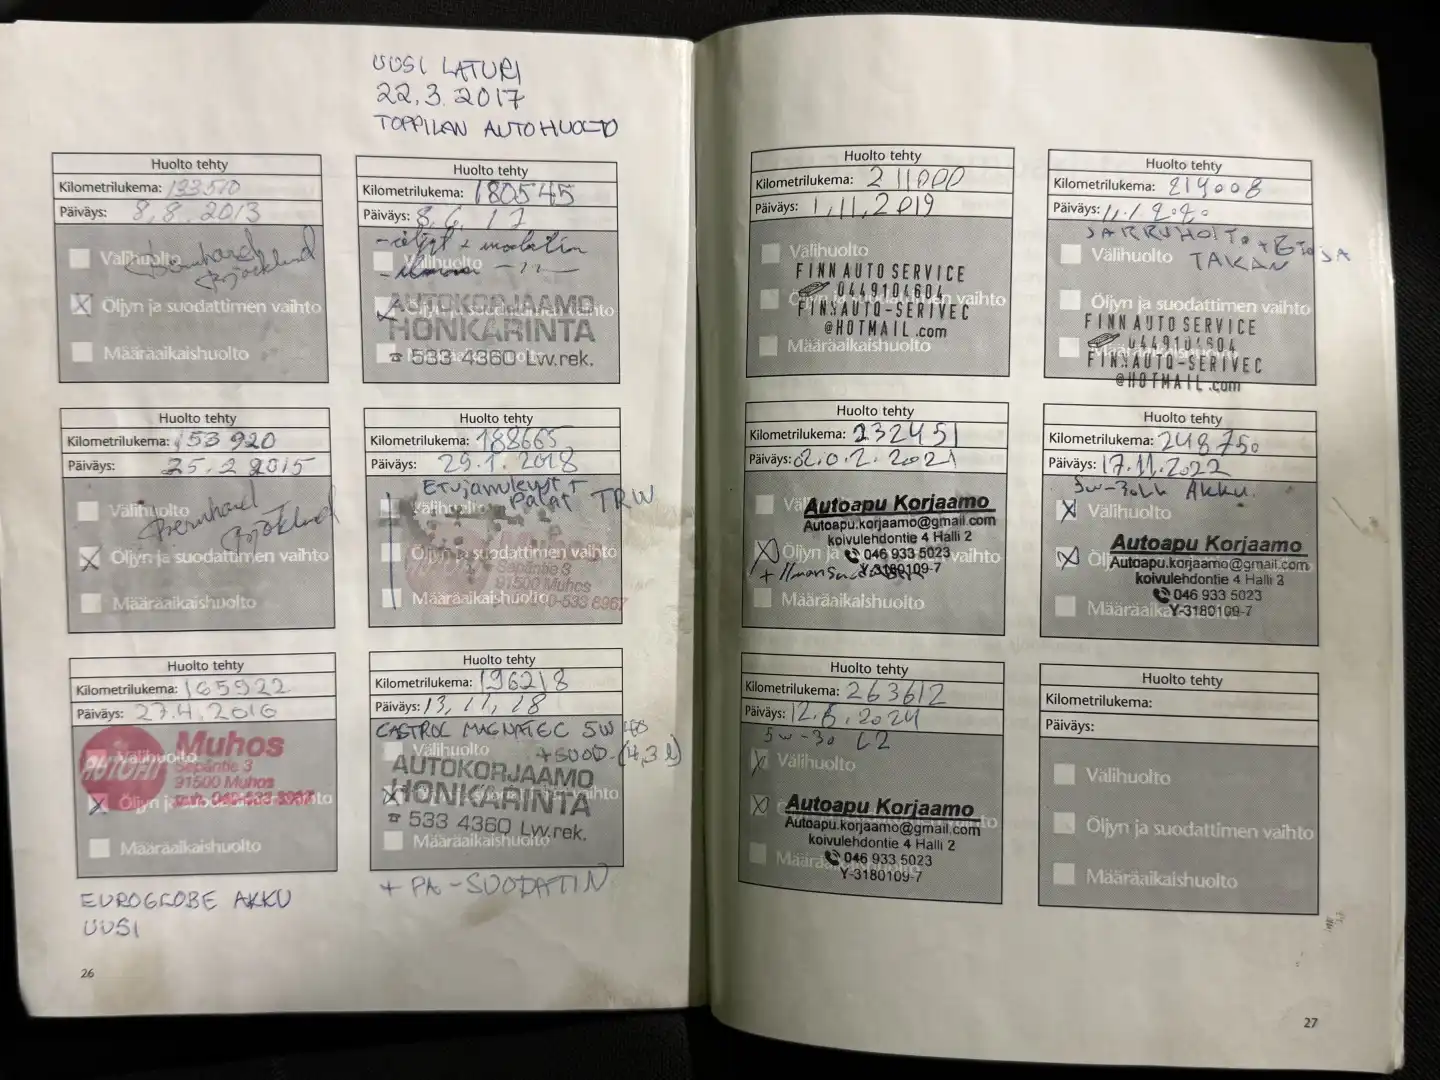 UUSI LATURI
22.3.2017
TOPPILAN AUTOHUOLTO
Huolto tehty
Kilometrilukema: 133510
Päiväys: 8.8.2013
Välihuolto
Öljyn ja suodattimen vaihto
Määräaikaishuolto
Huolto tehty
Kilometrilukema: 180545
Päiväys: 8.6.17
Välihuolto
Öljyn ja suodattimen vaihto
AUTOKORJAAMO
HONKARINTA
☎ 533 4360 Lw.rek.
Huolto tehty
Kilometrilukema: 153920
Päiväys: 25.2 2015
Bernhard
Välihuolto
Öljyn ja suodattimen vaihto
Määräaikaishuolto
Huolto tehty
Kilometrilukema: 188665
Päiväys: 29.1.2018
Palat TRW
Välihuolto
Öljyn ja suodattimen vaihto
Sepäntie 3
91500 Muhos
Määräaikaishuolto
Huolto tehty
Kilometrilukema: 165922
Päiväys: 27.4.2016
Muhos
Välihuolto
Sepäntie 3
91500 Muhos
Öljyn ja suodattimen vaihto
Määräaikaishuolto
EUROGLOBE AKKU
UUSI
Huolto tehty
Kilometrilukema: 196218
Päiväys: 13.11.18
CASTROL MAGNATEC 5W40
Välihuolto
+SUOD. (4,3 l)
AUTOKORJAAMO
HONKARINTA
☎ 533 4360 Lw.rek.
Määräaikaishuolto
+ PA-SUODATIN
26
Huolto tehty
Kilometrilukema: 211000
Päiväys: 1.11.2019
Välihuolto
FINN AUTO SERVICE
0449104604
Öljyn ja suodattimen vaihto
FINNAUTO-SERIVEC
@HOTMAIL.com
Määräaikaishuolto
Huolto tehty
Kilometrilukema: 214008
Päiväys: 11.1 2020
JARRUHOITO + ETOSA
Välihuolto
TAKAN
Öljyn ja suodattimen vaihto
FINN AUTO SERVICE
0449104604
FINNAUTO-SERIVEC
@HOTMAIL.com
Huolto tehty
Kilometrilukema: 232451
Päiväys: 02.02.2021
Välihuolto
Autoapu Korjaamo
Autoapu.korjaamo@gmail.com
koivulehdontie 4 Halli 2
046 933 5023
Öljyn ja suodattimen vaihto
Y-3180109-7
Määräaikaishuolto
Huolto tehty
Kilometrilukema: 248750
Päiväys: 17.11.2022
Akku.
Välihuolto
Autoapu Korjaamo
Autoapu.korjaamo@gmail.com
koivulehdontie 4 Halli 2
046 933 5023
Määräaikaishuolto
Y-3180109-7
Huolto tehty
Kilometrilukema: 263612
Päiväys: 12.6.2024
5W-30 C2
Välihuolto
Autoapu Korjaamo
Autoapu.korjaamo@gmail.com
koivulehdontie 4 Halli 2
046 933 5023
Määräaikaishuolto
Y-3180109-7
Huolto tehty
Kilometrilukema:
Päiväys:
Välihuolto
Öljyn ja suodattimen vaihto
Määräaikaishuolto
27